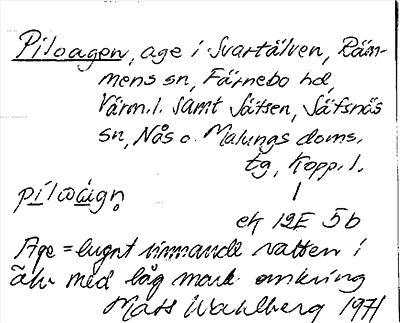 Piloagen, age i Svartälven, Räm-
mens sn, Färnebo hd,
Värm.l. samt Sätsen, Säfsnäs
sn, Nås o. Malungs doms.
tg, Kopp.l.
ek 12E 5b
Age = lugnt rinnande vatten i
älv med låg mark omkring
Mats Wahlberg 1971